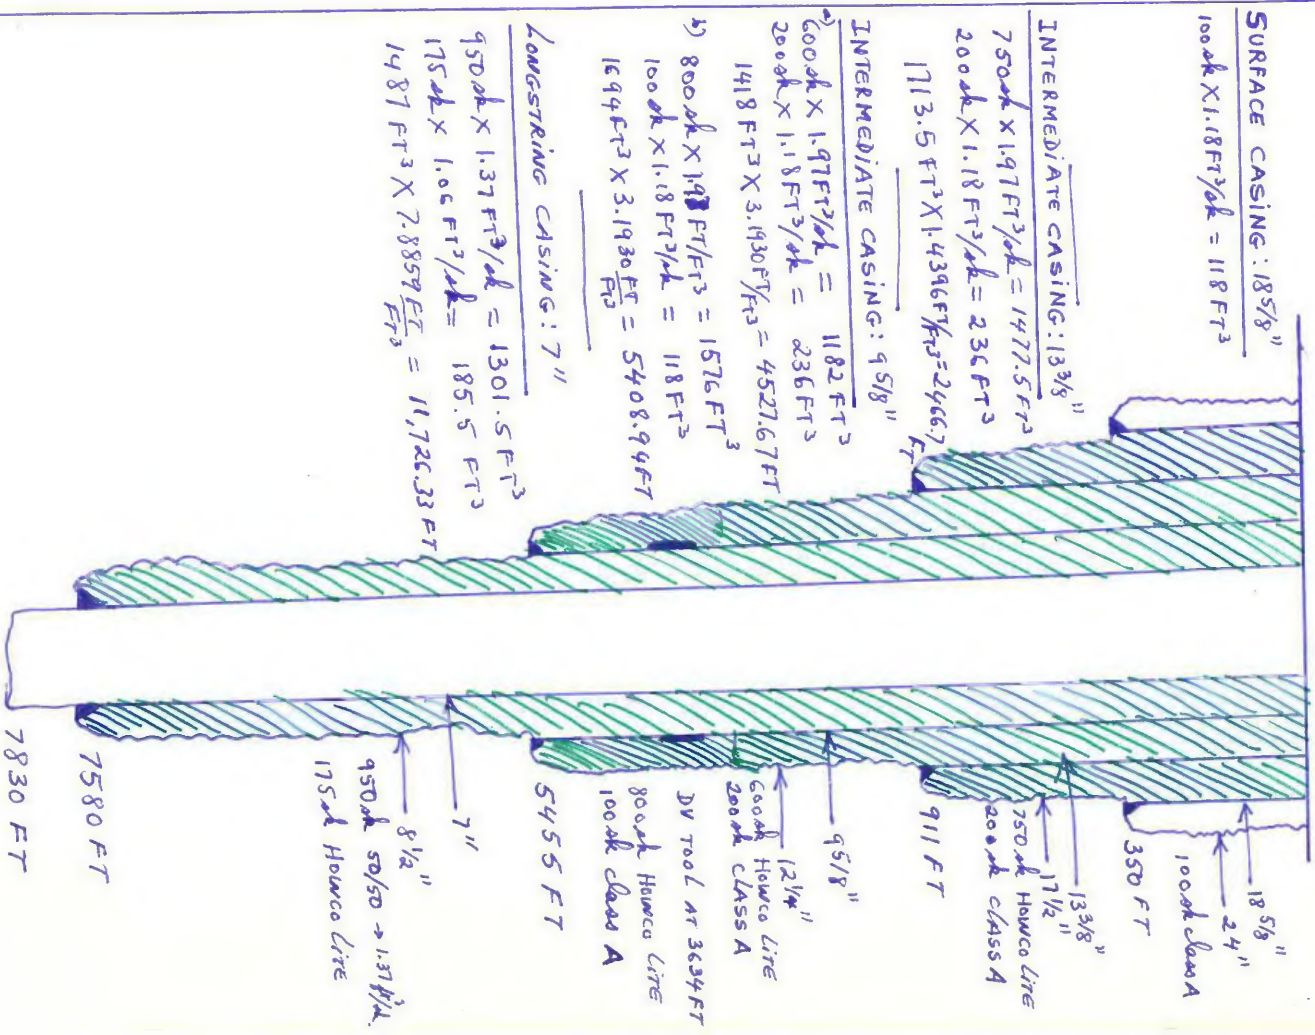 SURFACE CASING: 18 5/8"
100sk X 1.18 FT³/sk = 118 FT³
INTERMEDIATE CASING: 13 3/8"
750sk X 1.97 FT³/sk = 1477.5 FT³
200sk X 1.18 FT³/sk = 236 FT³
1713.5 FT³ X 1.4396 FT/FT³ = 2466.7 FT
INTERMEDIATE CASING: 9 5/8"
a) 600sk X 1.97 FT³/sk = 1182 FT³
200sk X 1.18 FT³/sk = 236 FT³
1418 FT³ X 3.1930 FT/FT³ = 4527.67 FT
b) 800sk X 1.97 FT/FT³ = 1576 FT³
100sk X 1.18 FT³/sk = 118 FT³
1694 FT³ X 3.1930 FT/FT³ = 5408.94 FT
LONGSTRING CASING: 7"
950sk X 1.37 FT³/sk = 1301.5 FT³
175sk X 1.06 FT³/sk = 185.5 FT³
1487 FT³ X 7.8859 FT/FT³ = 11,726.33 FT
18 5/8"
24"
100sk class A
350 FT
13 3/8"
17 1/2"
750 sk HOWCO LITE
200 sk CLASS A
911 FT
9 5/8"
12 1/4"
600sk HOWCO LITE
200sk CLASS A
DV TOOL AT 3634 FT
800sk HOWCO LITE
100sk class A
5455 FT
7"
8 1/2"
950sk 50/50 → 1.37 ft³/sk.
175sk HOWCO LITE
7580 FT
7830 FT